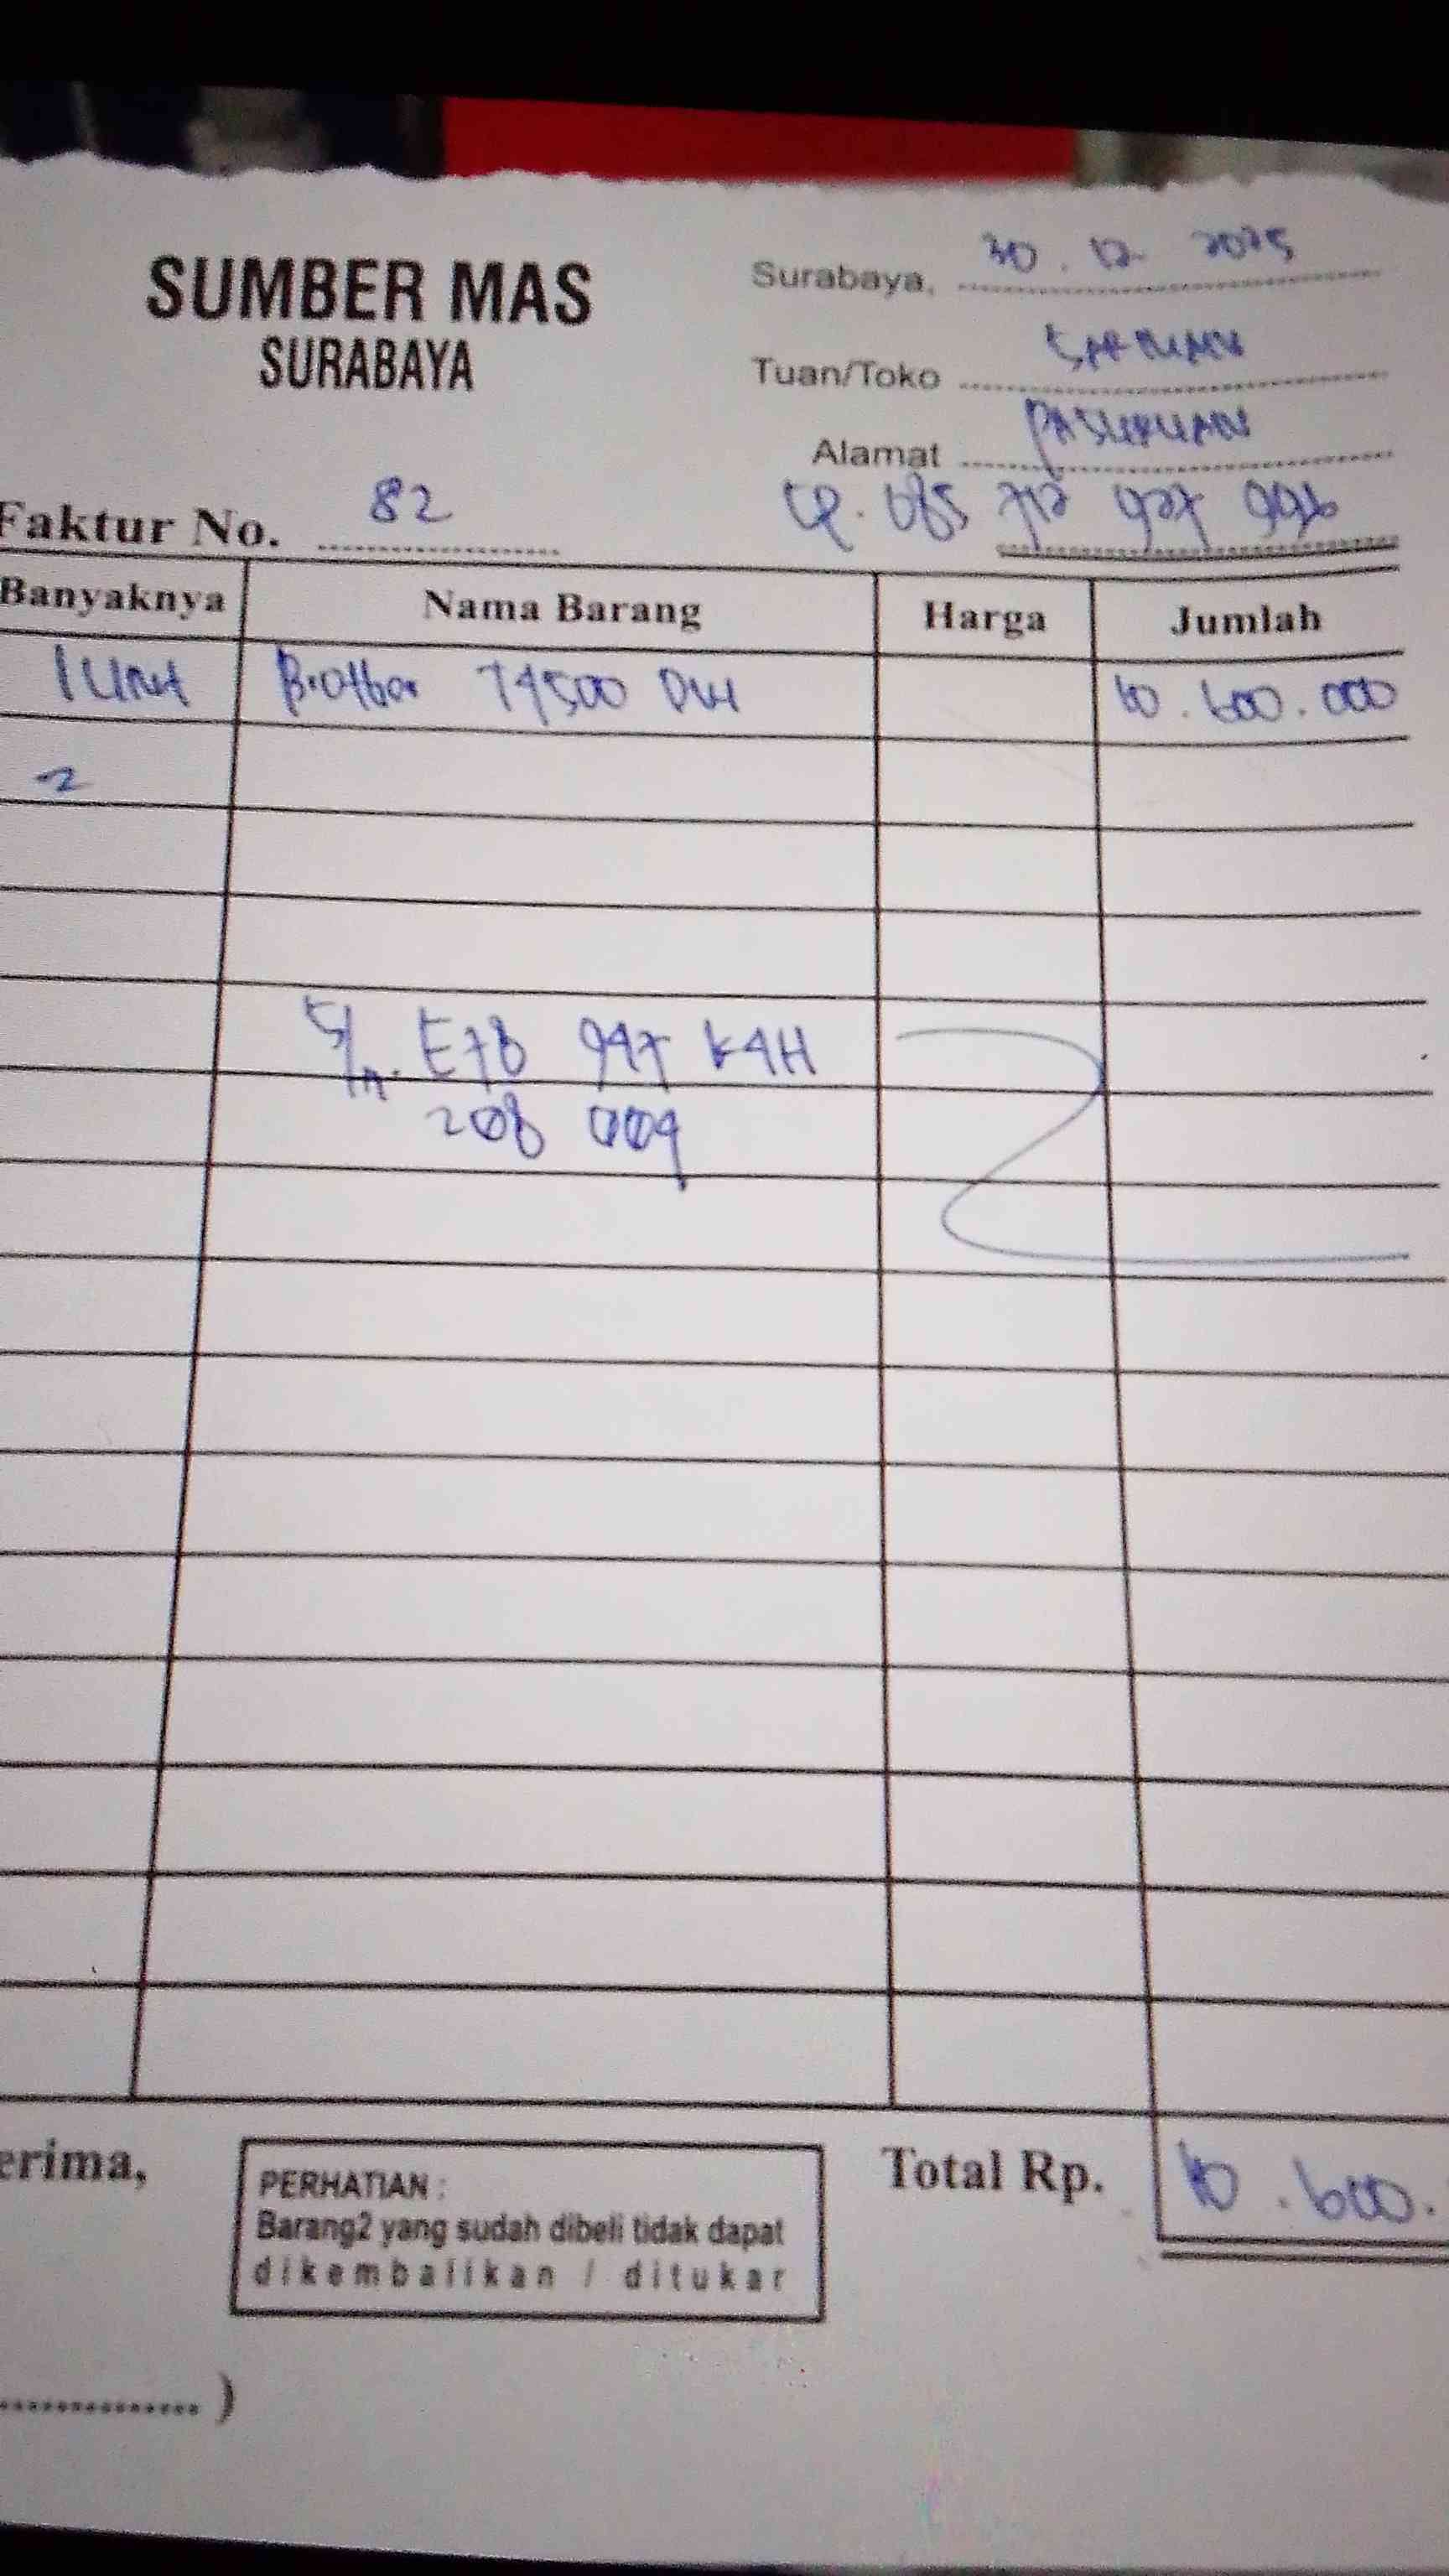 SUMBER MAS
SURABAYA
Surabaya, 30.12.2025
Tuan/Toko
Alamat PASURUAN
Faktur No. 82
Banyaknya Nama Barang Harga Jumlah
1 Unit Brother T4500 DW 10.600.000
S/n. E78 947 K4H
208 009
erima,
PERHATIAN :
Barang2 yang sudah dibeli tidak dapat
dikembalikan / ditukar
Total Rp. 10.600.
............... )